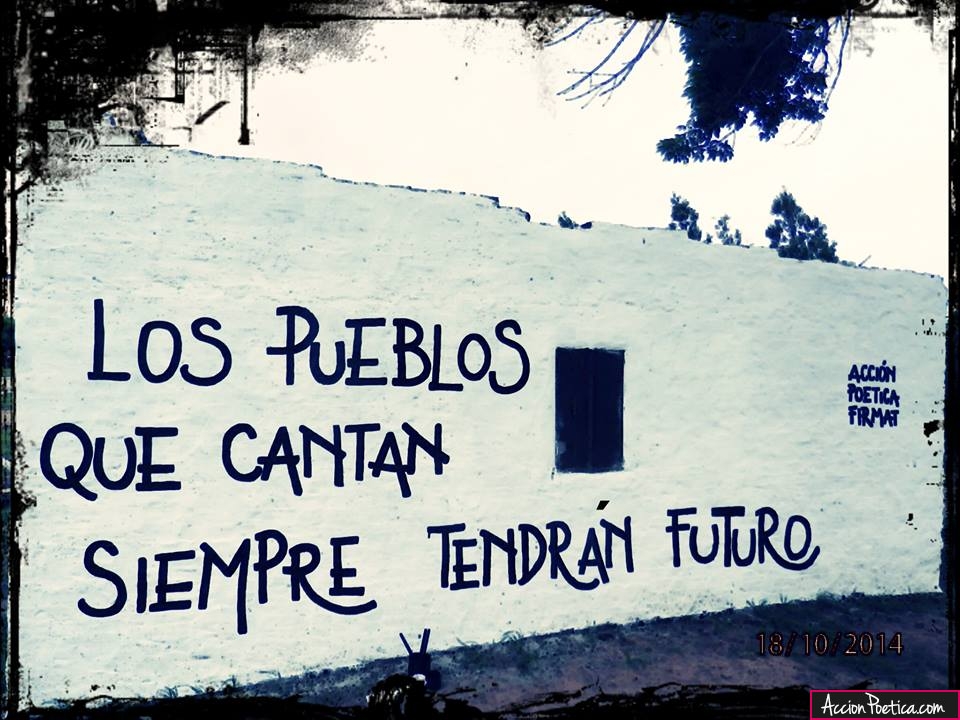 LOS PUEBLOS
QUE CANTAN
SIEMPRE TENDRÁN FUTURO
ACCIÓN
POETICA
FIRMAT
18/10/2014
AccionPoetica.com